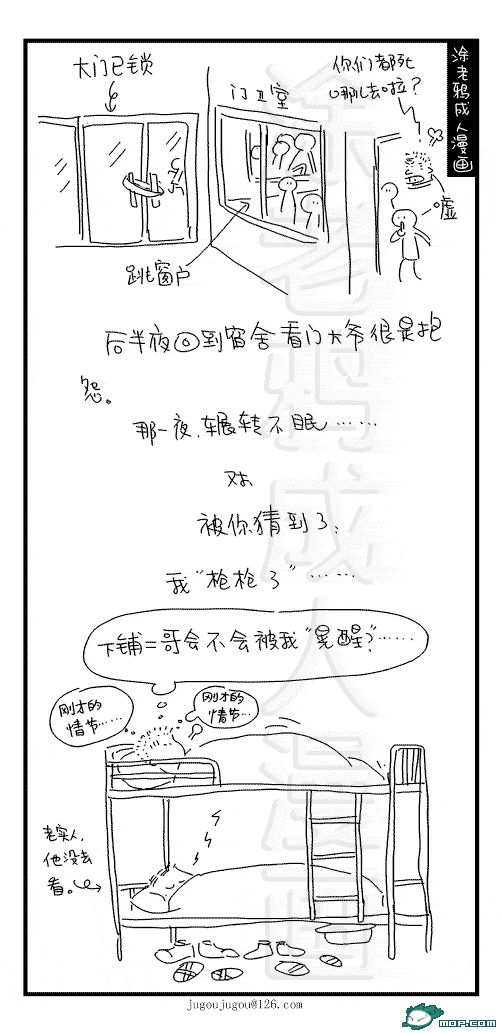 涂老鸦成人漫画
大门已锁
门卫室
你们都死
哪儿去啦?
嘘
跳窗户
后半夜回到宿舍看门大爷很是抱
怨。
那一夜,辗转不眠……
对
被你猜到了,
我“枪枪了”……
下铺二哥会不会被我“晃醒?”……
刚才的
情节……
刚才的
情节…
老实人,
他没去
看。
jugoujugou@126.com
MOP.COM
涂老鸦成人漫画